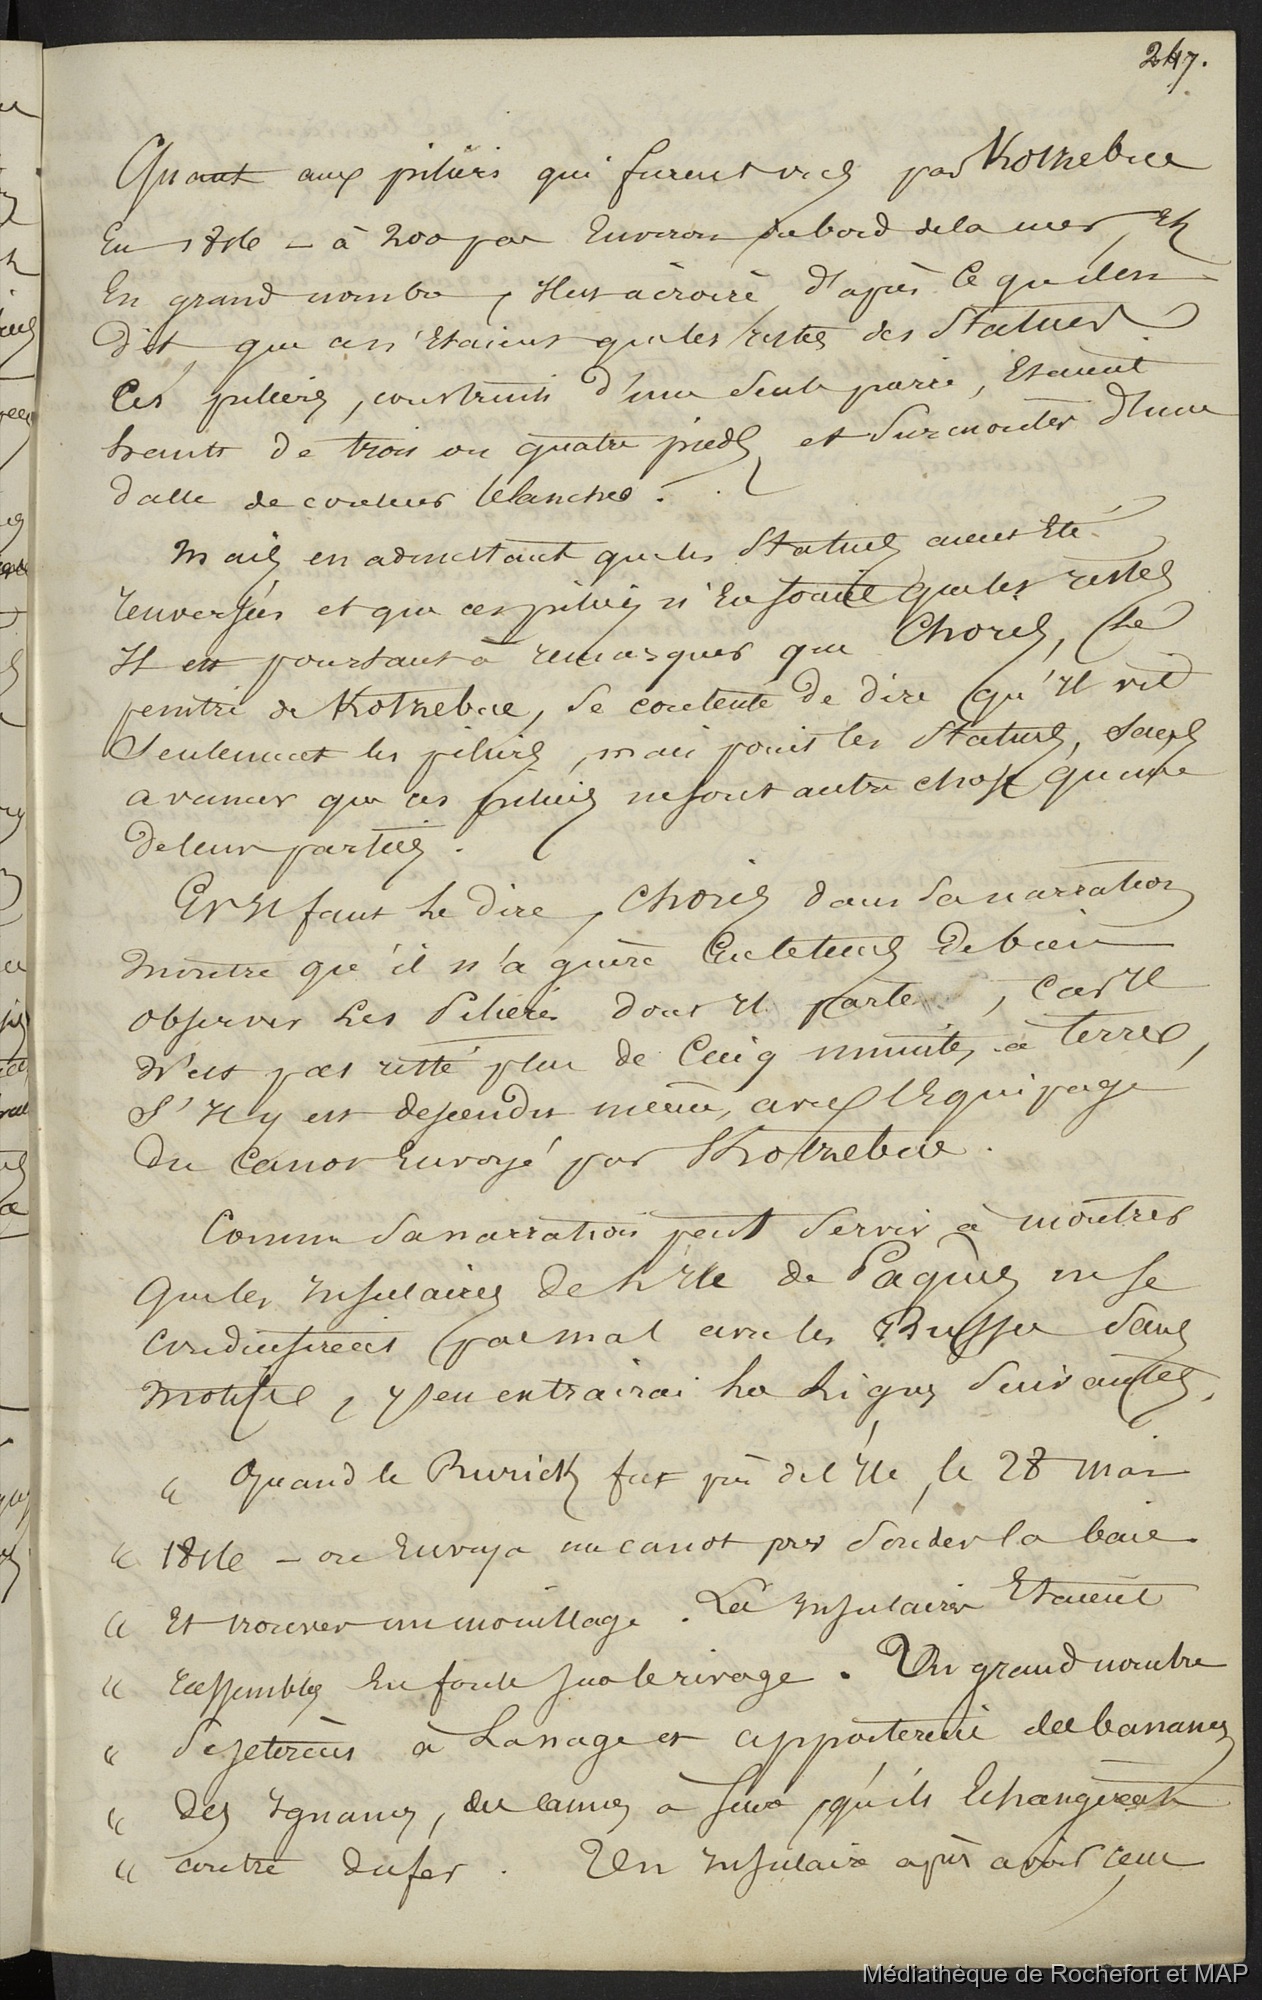 247.
Quant aux piliers qui furent vus par Kotzebue
En 1816 – à 200 pas Environ du bord de la mer, Et
En grand nombre, Il est à croire, d'après Ce qu'il en
dit, que ce n'Etaient que les restes des Statues
Ces piliers, construits d'une Seule pierre, Etaient
hauts de trois ou quatre pieds, et Surmontés d'une
dalle de couleur blanche.
Mais en admettant que les Statues aient Eté
renversées et que ces piliers n'En soient que les restes
Il est pourtant à remarquer que Choris, le
peintre de Kotzebue, Se contente de dire qu'Il vit
Seulement les piliers, mais point les Statues, Sans
avancer que ces piliers ne sont autre chose qu'une
de leurs parties.
Et Il faut le dire, Choris dans Sa narration
montre qu'il n'a guère Eu le tems de bien
observer Les Piliers dont Il parle, Car Il
N'est pas resté plus de Cinq minutes à terre,
S'Il y est descendu même, avec l'Equipage
du Canot Envoyé par Kotzebue.
Comme Sa narration peut Servir à montrer
Que les Insulaires de L'Ile de Pâques ne se
Conduisirent pas mal avec les Russes Sans
motifs, j'en extrairai les Lignes Suivantes.
" Quand le Rurick fut près de l'Ile, le 28 mars
" 1816 – on Envoya un canot pour Sonder la baie
" Et trouver un mouillage. Les Insulaires Etaient
" rassemblés En foule sur le rivage. Un grand nombre
" Se jetèrent à La nage et apportèrent des bananes
" Des Ignames, des cannes à Sucre, qu'ils Echangèrent
" contre du fer. Un Insulaire après avoir reçu
Médiathèque de Rochefort et MAP